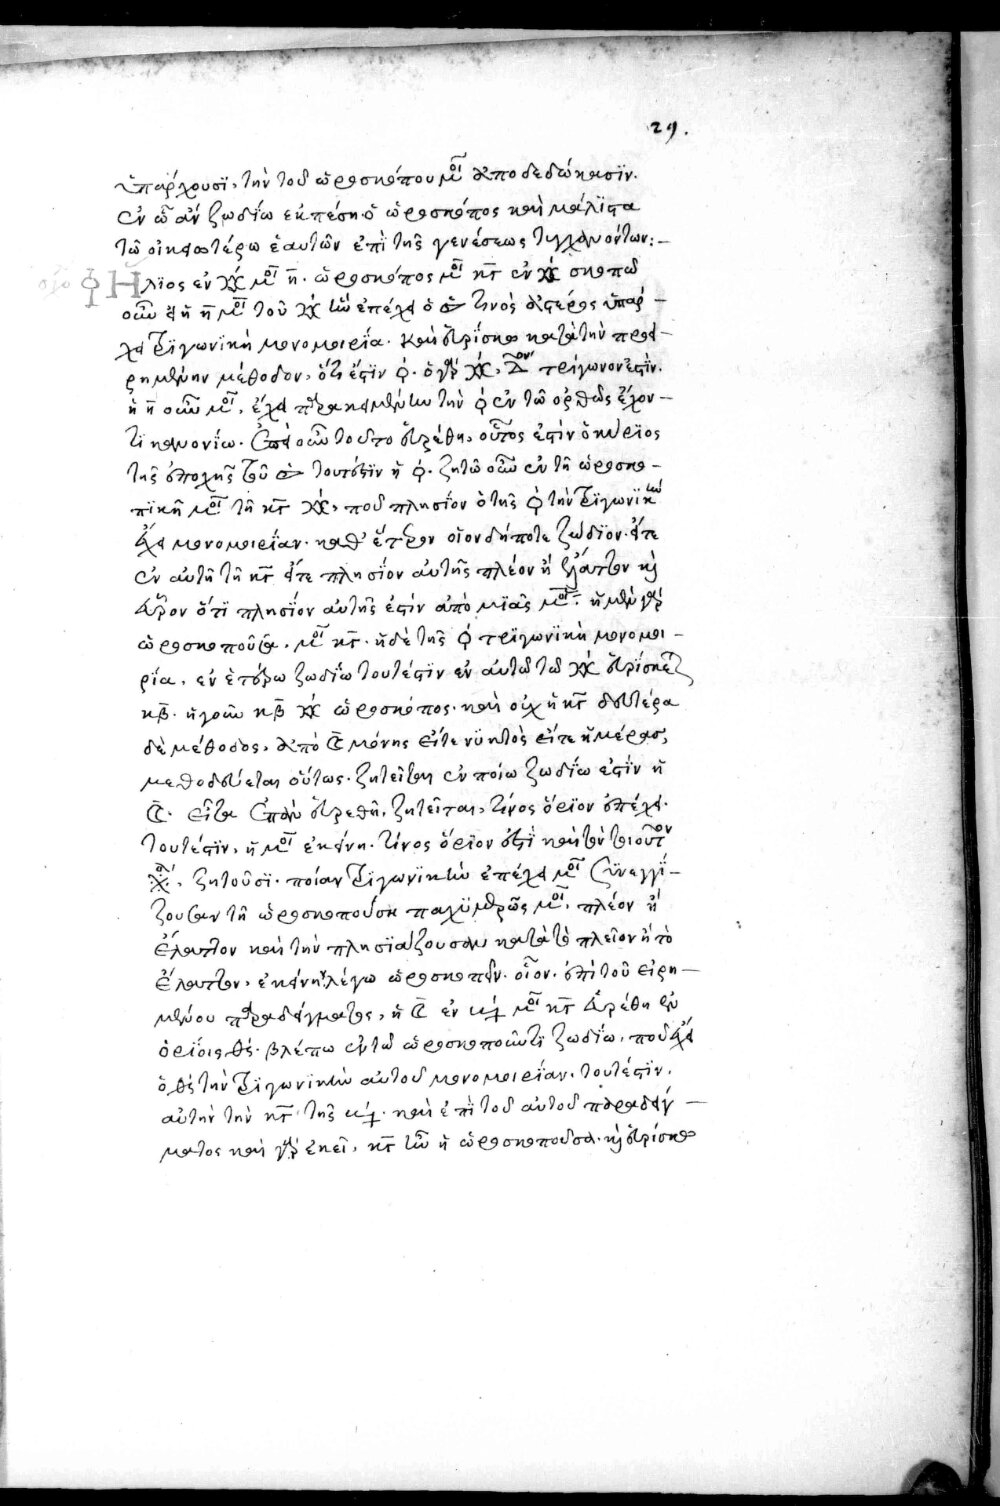 29.
ὑπάρχουσϊ, τὴν τοῦ ὡροσκόπου μοῖ ἀποδεδώκασϊν.
ἐν ὧ ἂν ζωδίω ἐκπέση ὁ ὡροσκόπος καὶ μάλϊστα
τῶ οἰκειοτέρω ἑαυτῶν ἐπὶ τῆς γενέσεως τυγχανόντων:—
Ἥλϊος ἐν μοῖ η. ὡροσκόπος μοῖ κγ ἐν σκοπῶ
οὖν ἡ η μοῖ τοῦ ἐπέχει ὁ τινὸς ἀστέρος ὑπάρ—
χει τρϊγωνϊκὴ μονομοιρία. καὶ εὑρίσκω κατὰ τὴν προει—
ρημένην μέθοδον, ὅτι ἐστὶν ♀. ὁ γὰρ τρίγωνον ἐστϊν.
ἡ η οὖν μοῖ, ἔχει παρακειμένην τὴν ♀ ἐν τῶ ὀρθῶς ἔχον—
τι κανονίω. ἐπεὶ οὖν τοῦτο εὑρέθη, οὗτος ἐστὶν ὁ κύριος
τῆς ἐποχῆς τοῦ τουτέστϊν ἡ ♀. ζητῶ οὖν ἐν τῆ ὡροσκο—
πϊκῆ μοῖ τῆ κγ, ποῦ πλησίον ὁ τῆς ♀ τὴν τρϊγωνϊκὴν
ἔχει μονομοιρίαν. καθ' ἕτερον οἱονδήποτε ζώδϊον. εἴτε
ἐν αὐτῆ τῆ κγ εἴτε πλησίον αὐτῆς πλέον ἢ ἔλαττον καὶ
εὗρον ὅτι πλησίον αὐτῆς ἐστὶν ἀπὸ μϊᾶς μοῖ. ἡ μὲν γὰρ
ὡροσκοποῦσα, μοῖ κγ. ἡ δὲ τῆς ♀ τρϊγωνϊκὴ μονομοι—
ρία, ἐν ἑτέρω ζωδίω τουτέστϊν ἐν αὐτῶ τῶ εὑρίσκεται
κβ. ἤγουν κβ ὡροσκόπος. καὶ οὐχ ἡ κγ δευτέρα
δὲ μέθοδος, ἀπὸ μόνης εἴτε νϋκτὸς εἴτε ἡμέρας,
μεθοδεύεται οὕτως. ζητεῖται ἐν ποίω ζωδίω ἐστὶν ἡ
εἶτα ἐπὰν εὑρεθῆ, ζητεῖται, τίνος ὅριον ἐπέχει.
τουτέστϊν, ἡ μοῖ ἐκείνη. τίνος ὅριον ἐστὶ καὶ τὸν τοιοῦτον
ζητοῦσϊ. ποίαν τρϊγωνϊκὴν ἐπέχει μοῖ συνεγγί—
ζουσαν τῆ ὡροσκοπούση παχϋμερῶς μοῖ. πλέον ἢ
ἔλαττον καὶ τὴν πλησϊάζουσαν κατὰ τὸ πλεῖον ἢ τὸ
ἔλαττον, ἐκείνην λέγω ὡροσκοπεῖν. οἷον. ἐπὶ τοῦ εἰρη—
μένου παραδείγματος, ἡ ἐν μοῖ κγ εὑρέθη ἐν
ὁρίοις θέ. βλέπω ἐν τῶ ὡροσκοποῦντι ζωδίω, ποῦ ἔχει
ὁ θέ τὴν τρϊγωνϊκὴν αὐτοῦ μονομοιρίαν. τουτέστϊν,
αὐτὴν τὴν κγ τῆς καὶ ἐπὶ τοῦ αὐτοῦ παραδείγ—
ματος καὶ γὰρ ἐκεῖ, κγ ἦν ἡ ὡροσκοποῦσα. καὶ εὑρίσκω